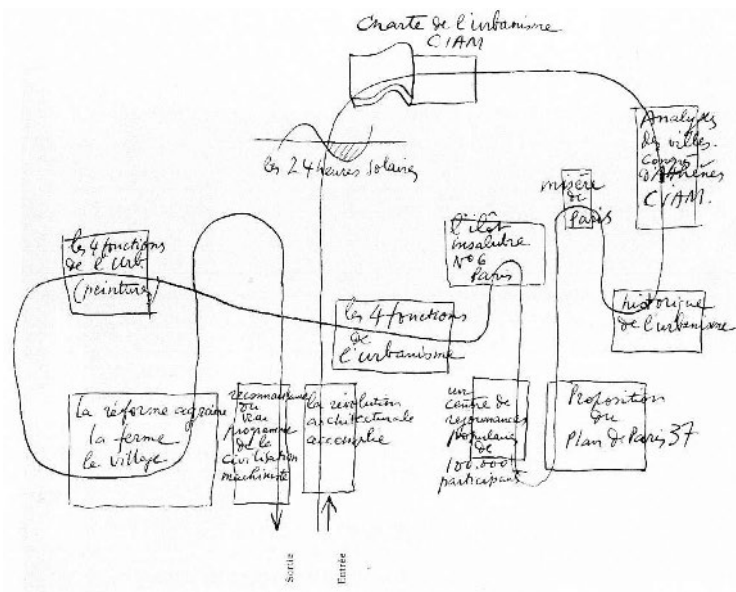 Charte de l'urbanisme
CIAM
les 24 heures solaires
Analyses
des villes.
Congrès
d'Athènes
CIAM.
misère
de
Paris
l'ilôt
insalubre
N° 6
Paris
les 4 fonctions
de l'urb.
(peinture)
les 4 fonctions
de
l'urbanisme
historique
de l'urbanisme
la réforme agraire
la ferme
le village
reconnaissance
du
vrai
programme
de la
civilisation
machiniste
la révolution
architecturale
accomplie
un
centre de
réjouissances
populaires
de
100.000
participants
Proposition
du
Plan de Paris 37
Sortie
Entrée